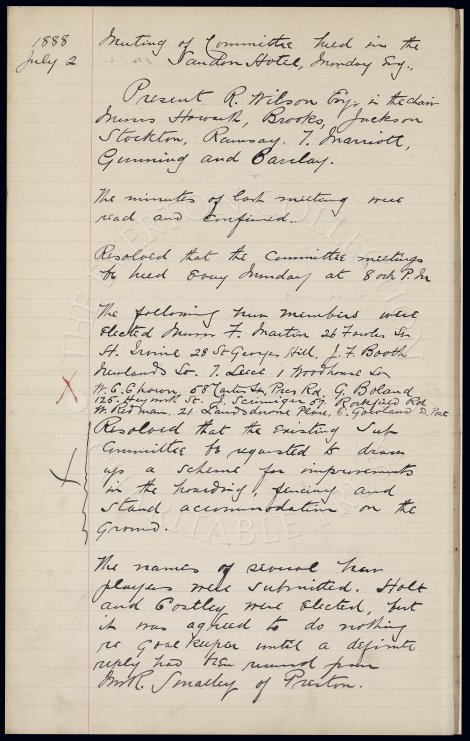 1888
July 2
Meeting of Committee held in the
Sandon Hotel, Monday Evg.,
Present R. Wilson Esq, in the chair
Messrs Howarth, Brooks, Jackson
Stockton, Ramsay, T. Marriott,
Gumming and Barclay.
The minutes of last meeting were
read and confirmed.
Resolved that the Committee meetings
be held Every Monday at 8 o'ck P.M
The following new members were
Elected Messrs F. Martin 26 Fowler St
H. Irvine 28 St Georges Hill, J. F. Booth
Newlands St. T. Leece 1 Woodhouse St
W. C. Chown, 68 Pres Rd, G. Boland
125 Heyworth St. J. 57 Rockfield Rd
W. Redman, 21 Landsdowne Place,
Resolved that the Existing Sub
Committee be requested to draw
up a scheme for improvements
in the hoarding, fencing and
stand accommodation on the
Ground.
The names of several new
players were submitted. Holt
and Costley were Elected, but
it was agreed to do nothing
re Goalkeeper until a definite
reply had been received from
Mr R. Smalley of Preston.
THE EVERTON COLLECTION
CHARITABLE TRUST